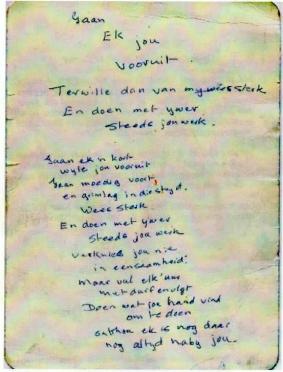 Gaan
Ek
jou
vooruit.
Terwille dan van my wees sterk
En doen met ywer
Steeds jou werk.
Gaan ek 'n kort
wyle jou vooruit
Gaan moedig voort,
en grimlag in die styd.
Wees Sterk
En doen met ywer
Steeds jou werk
verknies jou nie
in eensaamheid!
Maar vul elk' uur
met durf en vlyt
Doen wat jou hand vind
om te doen
onthou ek is nog daar
nog altyd naby jou.